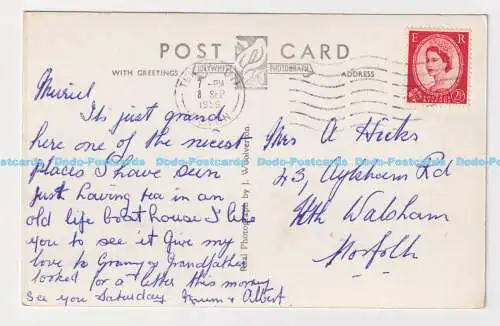 POST CARD
WITH GREETINGS
ADDRESS
DAINTYWHITE PHOTOGRAPH
7 - PM
8 SEP
1956
DEVON
E R
POSTAGE REVENUE
2½D
Muriel
Its just grand
here one of the nicest
places I have seen
just having tea in an
old life boat house I'd like
you to see it Give my
love to Granny & Grandfather
looked for a letter this morning
See you Saturday & Albert
Real Photograph by J. Woolverton.
Mrs A Hicks
43, Aylsham Rd
Nth Walsham
Norfolk
Postcards Dodo-Postcards Dodo-Postcards Dodo-Postcards Dodo-Postcards Dodo-Postcards